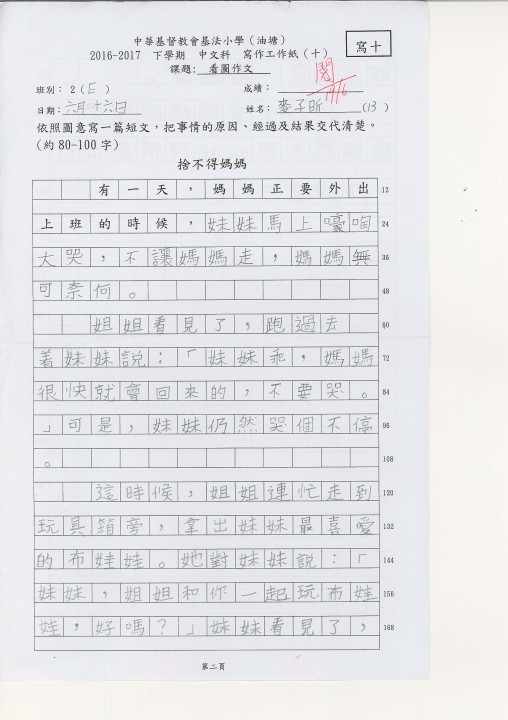 中華基督教會基法小學（油塘）
2016-2017 下學期 中文科 寫作工作紙（十）
寫十
課題: 看圖作文
閱
班別: 2 (E) 成績:
17/6
日期: 六月十六日 姓名: 麥子昕 (13)
依照圖意寫一篇短文，把事情的原因、經過及結果交代清楚。
(約 80-100 字)
捨不得媽媽
有一天，媽媽正要外出 12
上班的時候，妹妹馬上嚎啕 24
大哭，不讓媽媽走，媽媽無 36
可奈何。 48
姐姐看見了，跑過去 60
着妹妹說：「妹妹乖，媽媽 72
很快就會回來的，不要哭。 84
」可是，妹妹仍然哭個不停 96
。 108
這時候，姐姐連忙走到 120
玩具箱旁，拿出妹妹最喜愛 132
的布娃娃。她對妹妹說：「 144
妹妹，姐姐和你一起玩布娃 156
娃，好嗎？」妹妹看見了， 168
第二頁